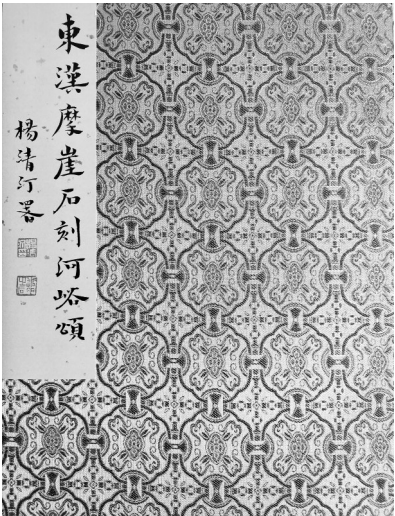 東漢摩崖石刻河峪頌
楊清汀署